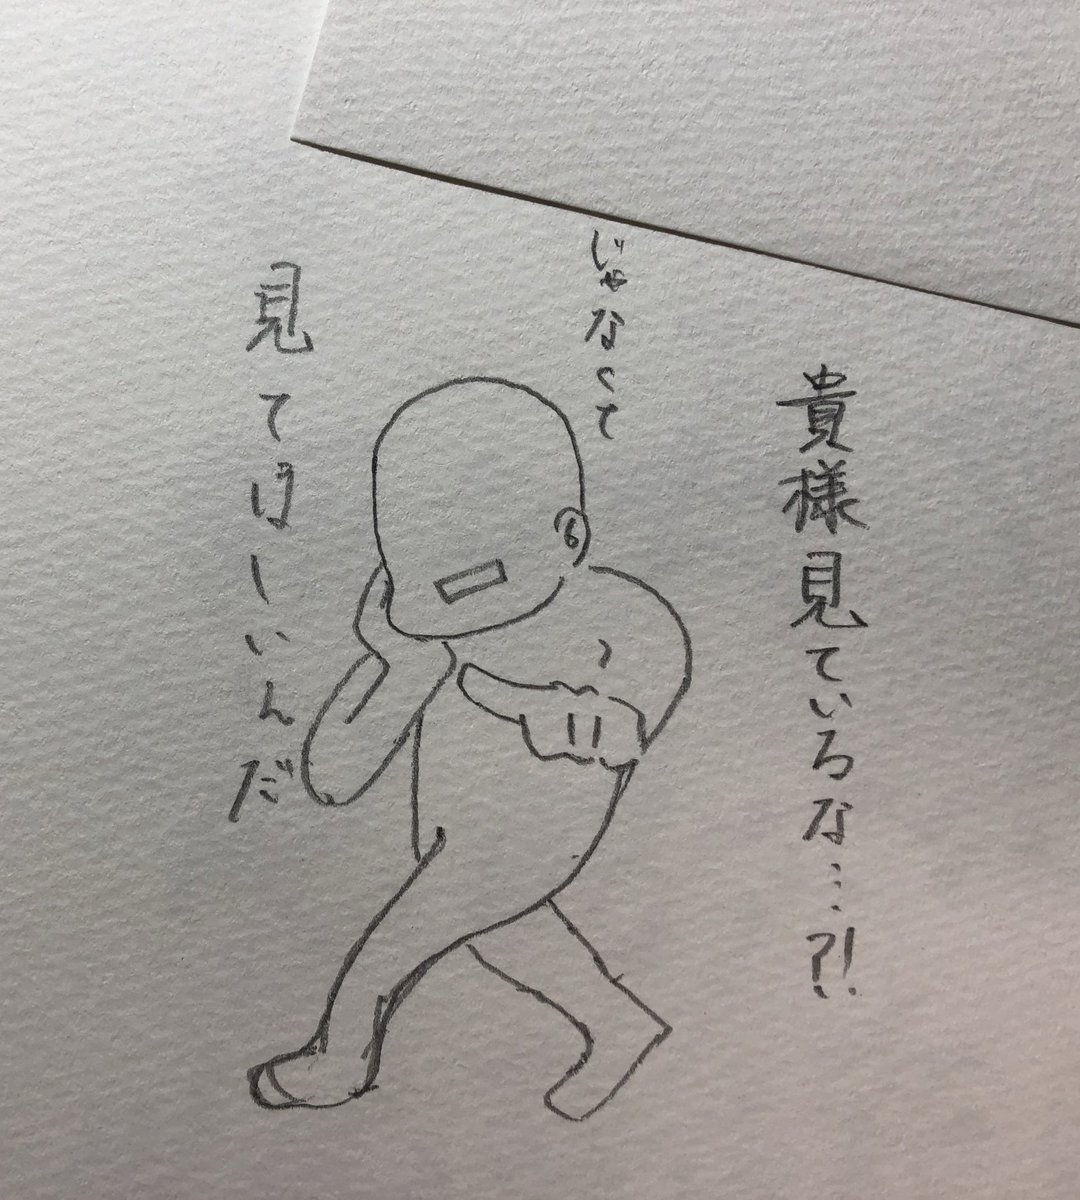 貴様見ているな…?!
じゃなくて
見てほしいんだ